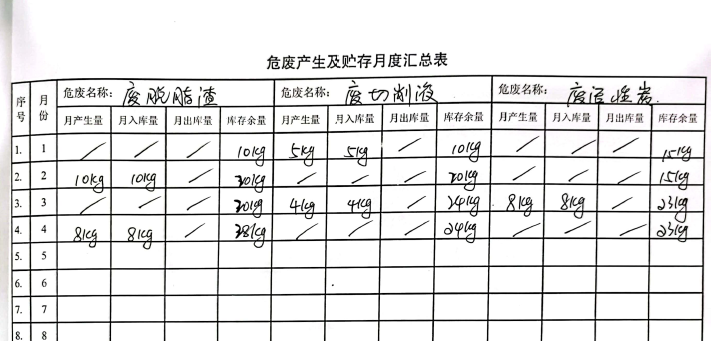 危废产生及贮存月度汇总表
序号 月份 危废名称：废脱脂渣 危废名称：废切削液 危废名称：废活性炭
月产生量 月入库量 月出库量 库存余量 月产生量 月入库量 月出库量 库存余量 月产生量 月入库量 月出库量 库存余量
1. 1 / / / 10kg 5kg 5kg / 10kg / / / 15kg
2. 2 10kg 10kg / 20kg / / / 20kg / / / 15kg
3. 3 / / / 20kg 4kg 4kg / 24kg 8kg 8kg / 23kg
4. 4 8kg 8kg / 28kg / / / 24kg / / / 23kg
5. 5
6. 6
7. 7
8. 8